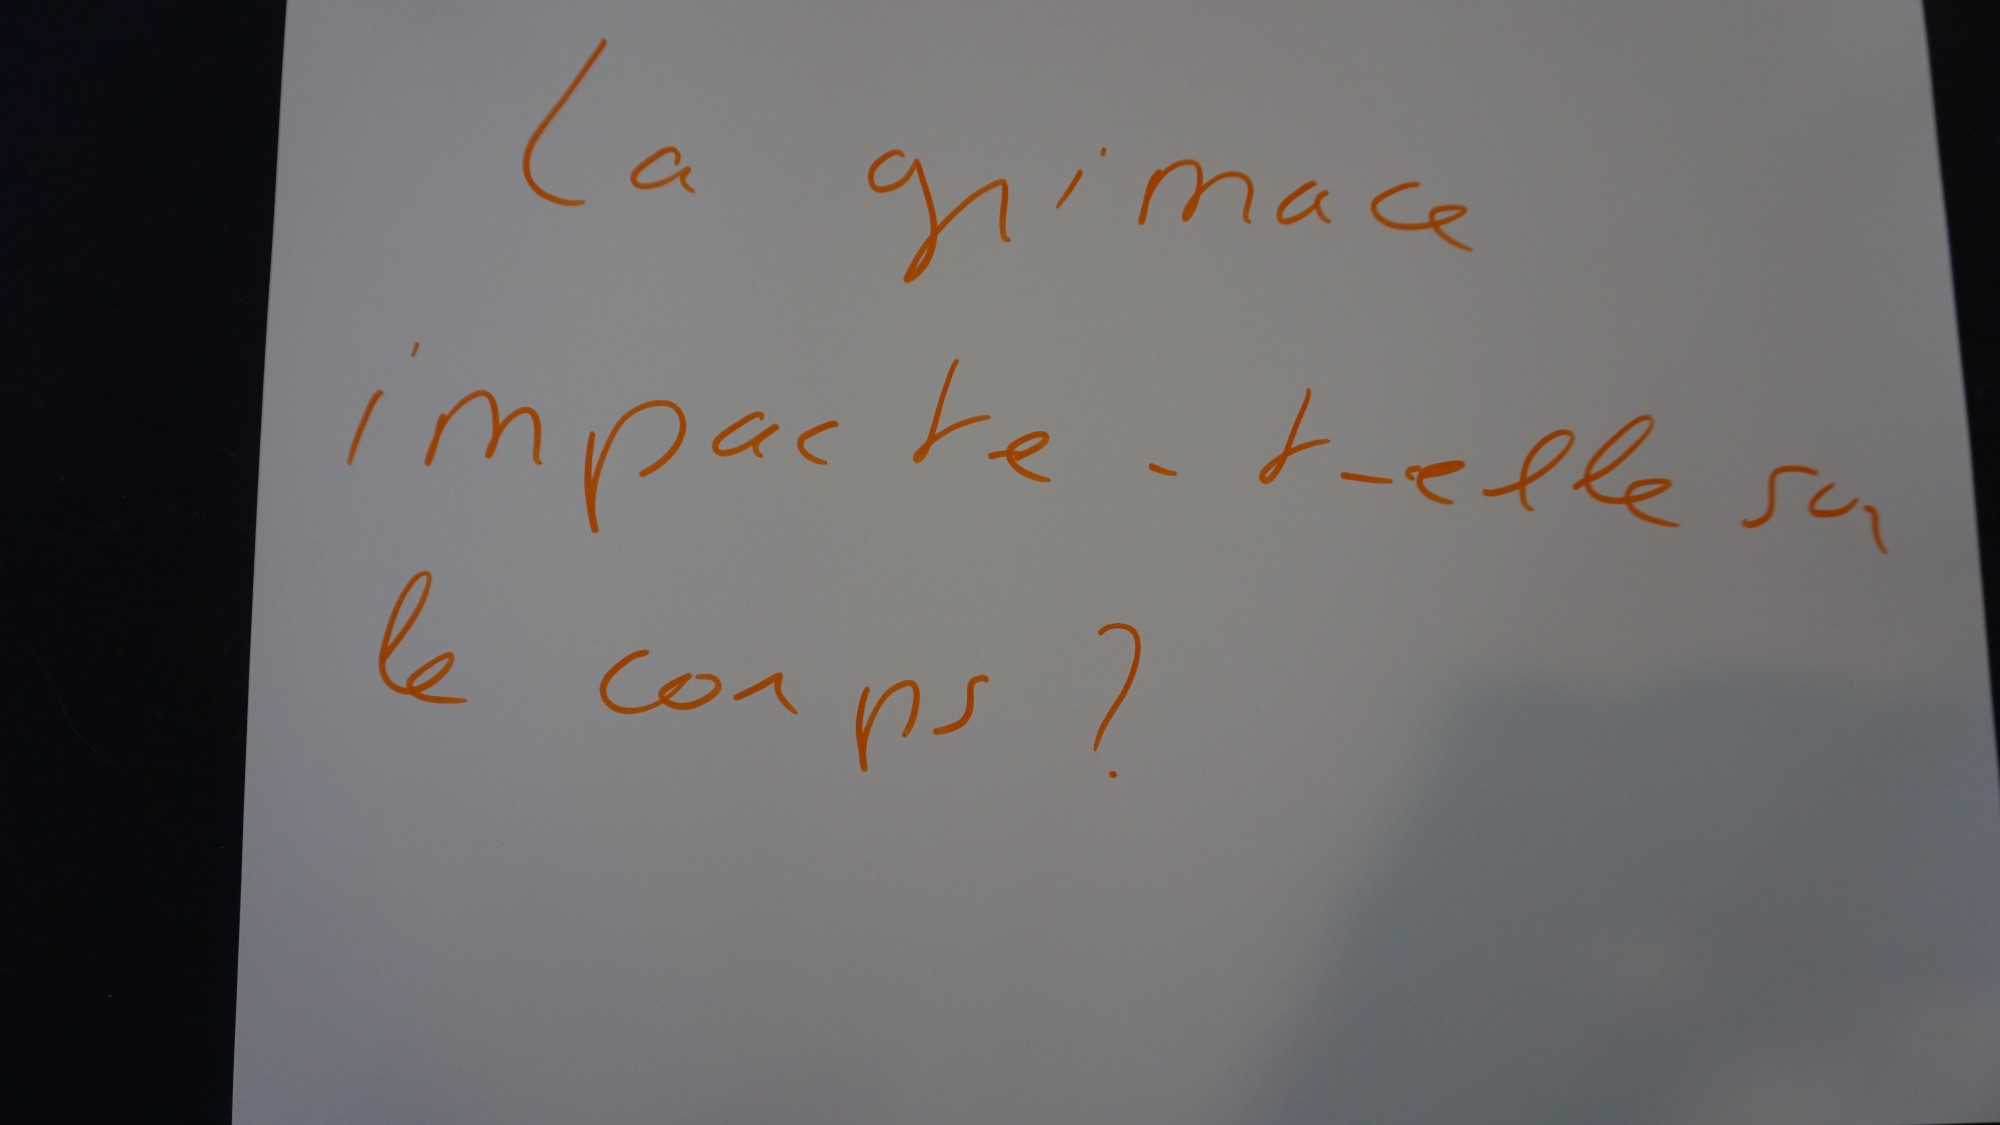 La grimace
impacte-t-elle sur
le corps ?